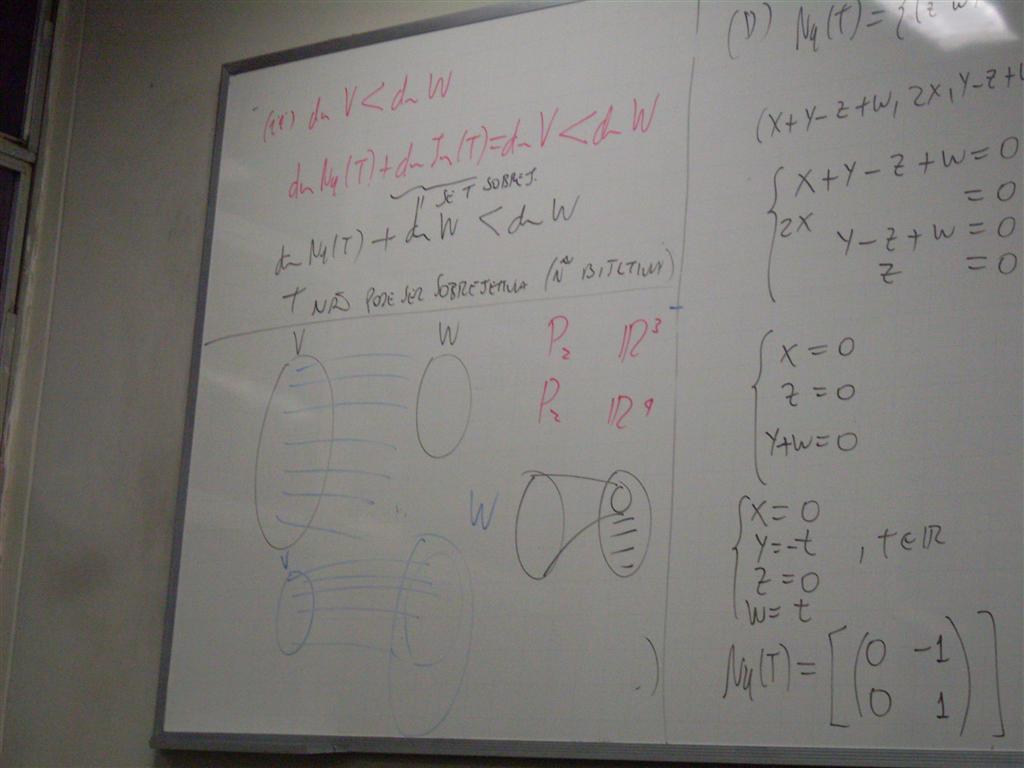 (ii) dim V < dim W
dim Nuc(T) + dim Im(T) = dim V < dim W
|| SE T SOBREJ.
dim Nuc(T) + dim W < dim W
T NÃO PODE SER SOBREJETIVA (Ñ BIJETIVA)
V W
P₂ ℝ³
P₂ ℝ⁴
W
V
(D) Nuc(T) = {(z w)
(X+Y-Z+W, 2X, Y-Z+W
X+Y-Z+W=0
2X =0
Y-Z+W=0
Z =0
X=0
Z=0
Y+W=0
X=0
Y=-t , t∈ℝ
Z=0
W=t
Nuc(T) = [(0 -1
0 1)]